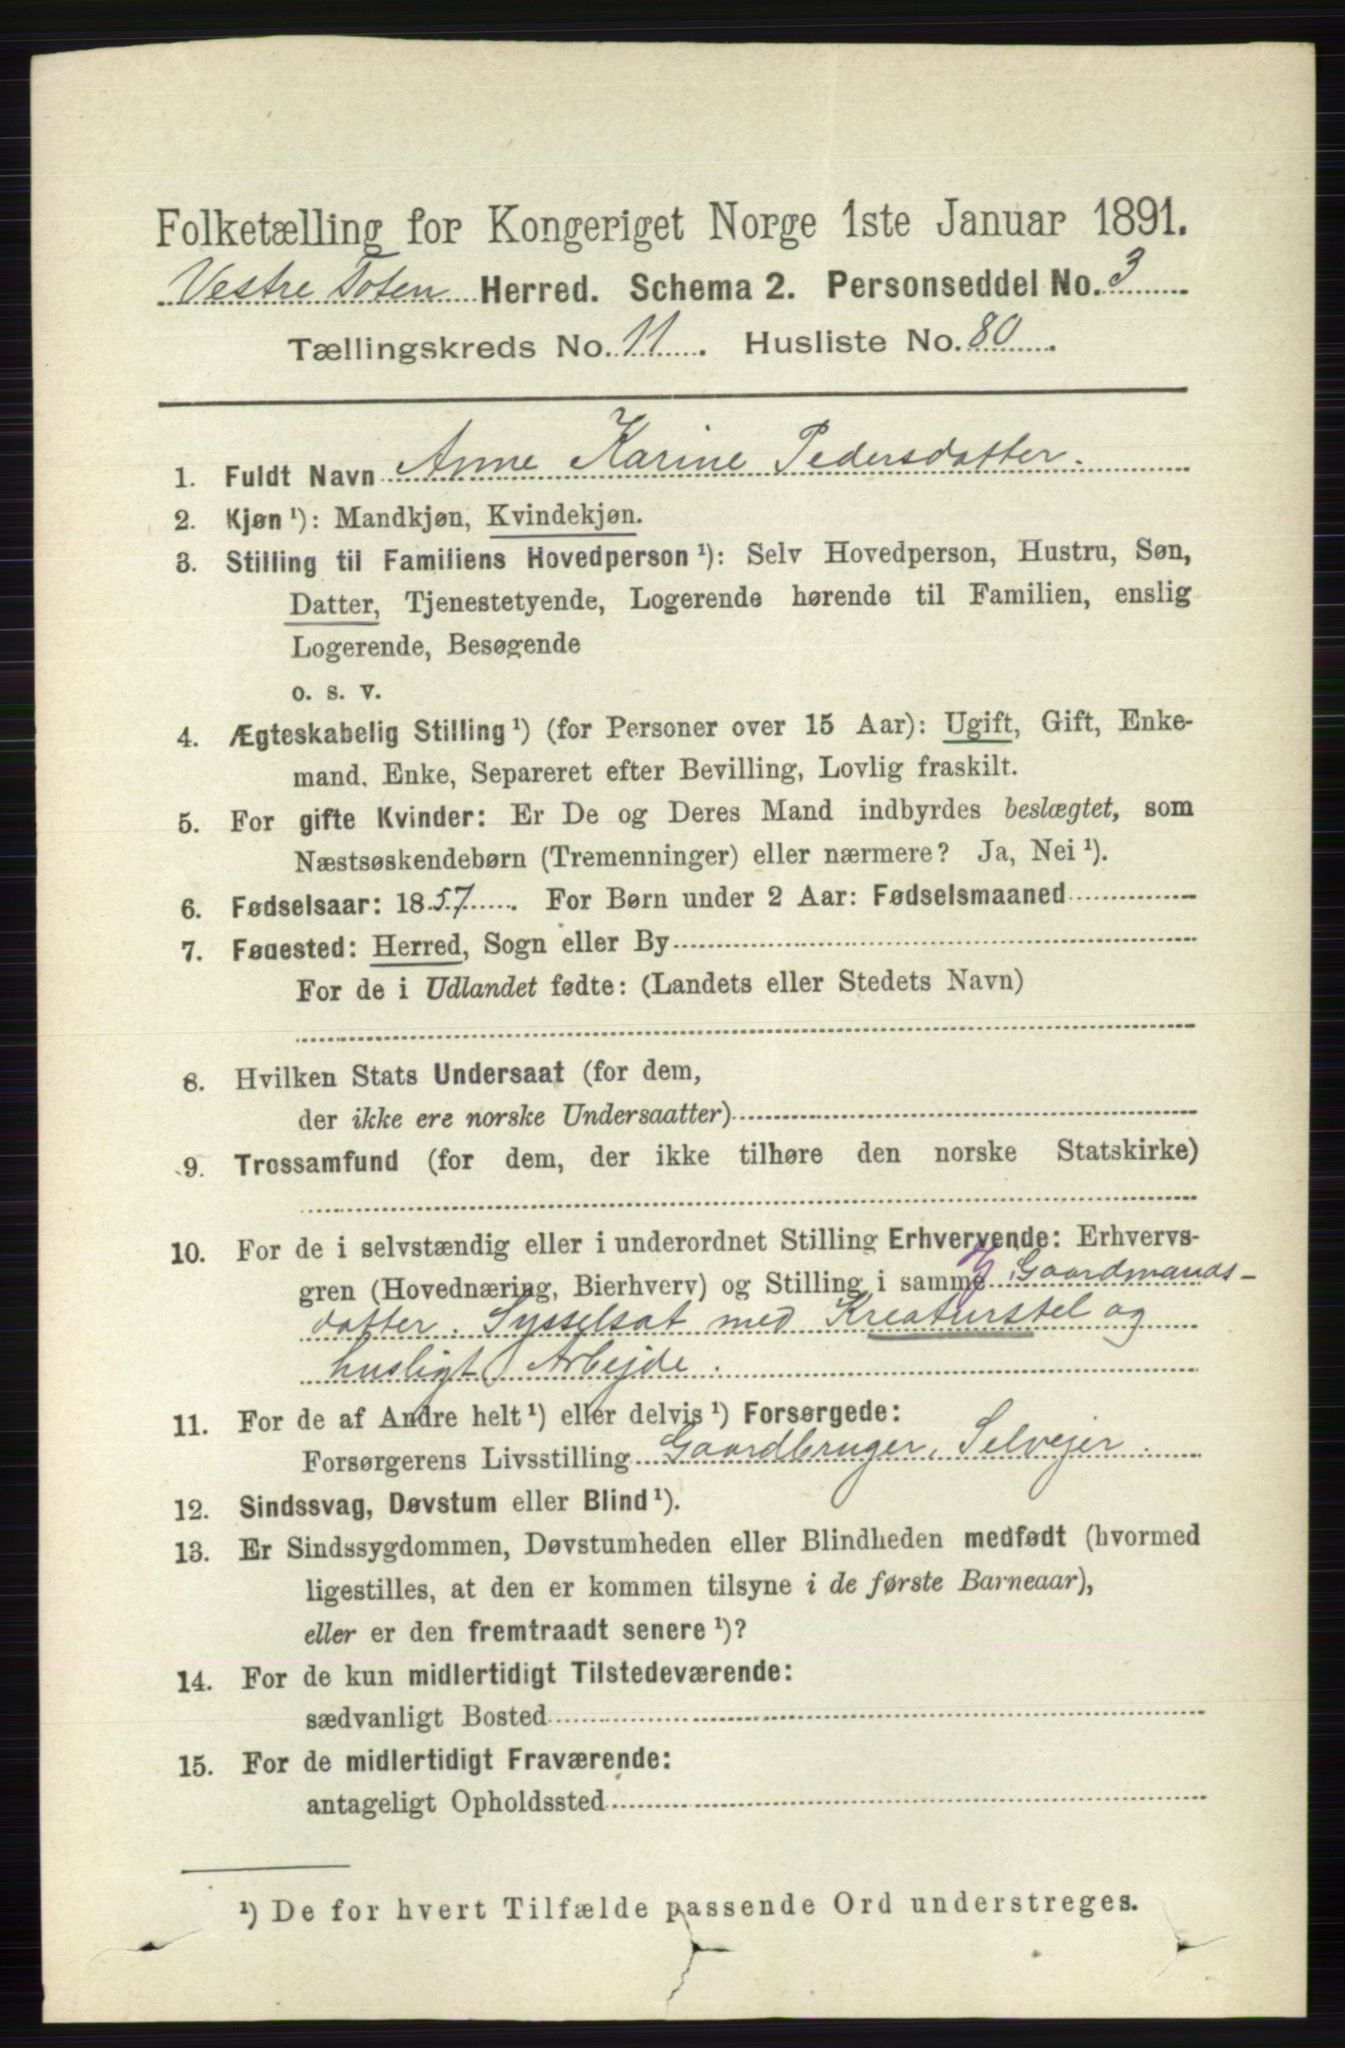 Folketælling for Kongeriget Norge 1ste Januar 1891.
Vestre Toten Herred. Schema 2. Personseddel No. 3
Tællingskreds No. 11. Husliste No. 80.
1. Fuldt Navn Anne Karine Pedersdatter.
2. Kjøn ¹): Mandkjøn, Kvindekjøn.
3. Stilling til Familiens Hovedperson ¹): Selv Hovedperson, Hustru, Søn,
Datter, Tjenestetyende, Logerende hørende til Familien, enslig
Logerende, Besøgende
o. s. v.
4. Ægteskabelig Stilling ¹) (for Personer over 15 Aar): Ugift, Gift, Enke-
mand, Enke, Separeret efter Bevilling, Lovlig fraskilt.
5. For gifte Kvinder: Er De og Deres Mand indbyrdes beslægtet, som
Næstsøskendebørn (Tremenninger) eller nærmere? Ja, Nei ¹).
6. Fødselsaar: 1857. For Børn under 2 Aar: Fødselsmaaned
7. Føuested: Herred, Sogn eller By
For de i Udlandet fødte: (Landets eller Stedets Navn)
8. Hvilken Stats Undersaat (for dem,
der ikke ere norske Undersaatter)
9. Trossamfund (for dem, der ikke tilhøre den norske Statskirke)
10. For de i selvstændig eller i underordnet Stilling Erhvervende: Erhvervs-
gren (Hovednæring, Bierhverv) og Stilling i samme Gaardmands-
datter. Sysselsat med Kreaturstel og
husligt Arbejde.
11. For de af Andre helt ¹) eller delvis ¹) Forsørgede:
Forsørgerens Livsstilling Gaardbruger, Selvejer.
12. Sindssvag, Døvstum eller Blind ¹).
13. Er Sindssygdommen, Døvstumheden eller Blindheden medfødt (hvormed
ligestilles, at den er kommen tilsyne i de første Barneaar),
eller er den fremtraadt senere ¹)?
14. For de kun midlertidigt Tilstedeværende:
sædvanligt Bosted
15. For de midlertidigt Fraværende:
antageligt Opholdssted
¹) De for hvert Tilfælde passende Ord understreges.